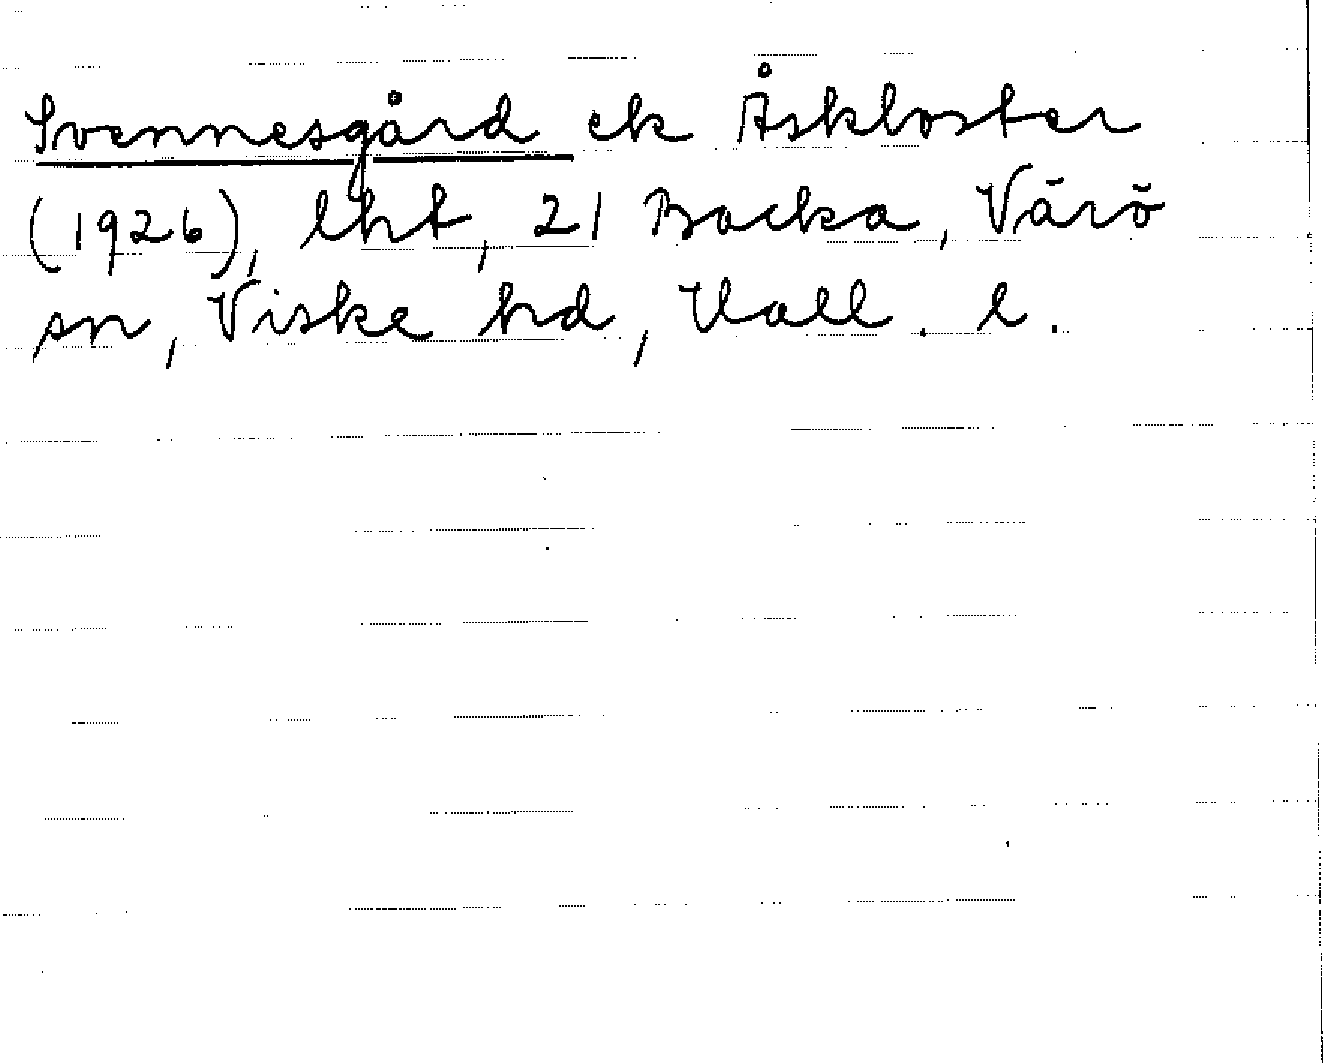 Svennesgård ek Åskloster
(1926), lht, 21 Backa, Värö
sn, Viske hd, Hall. l.